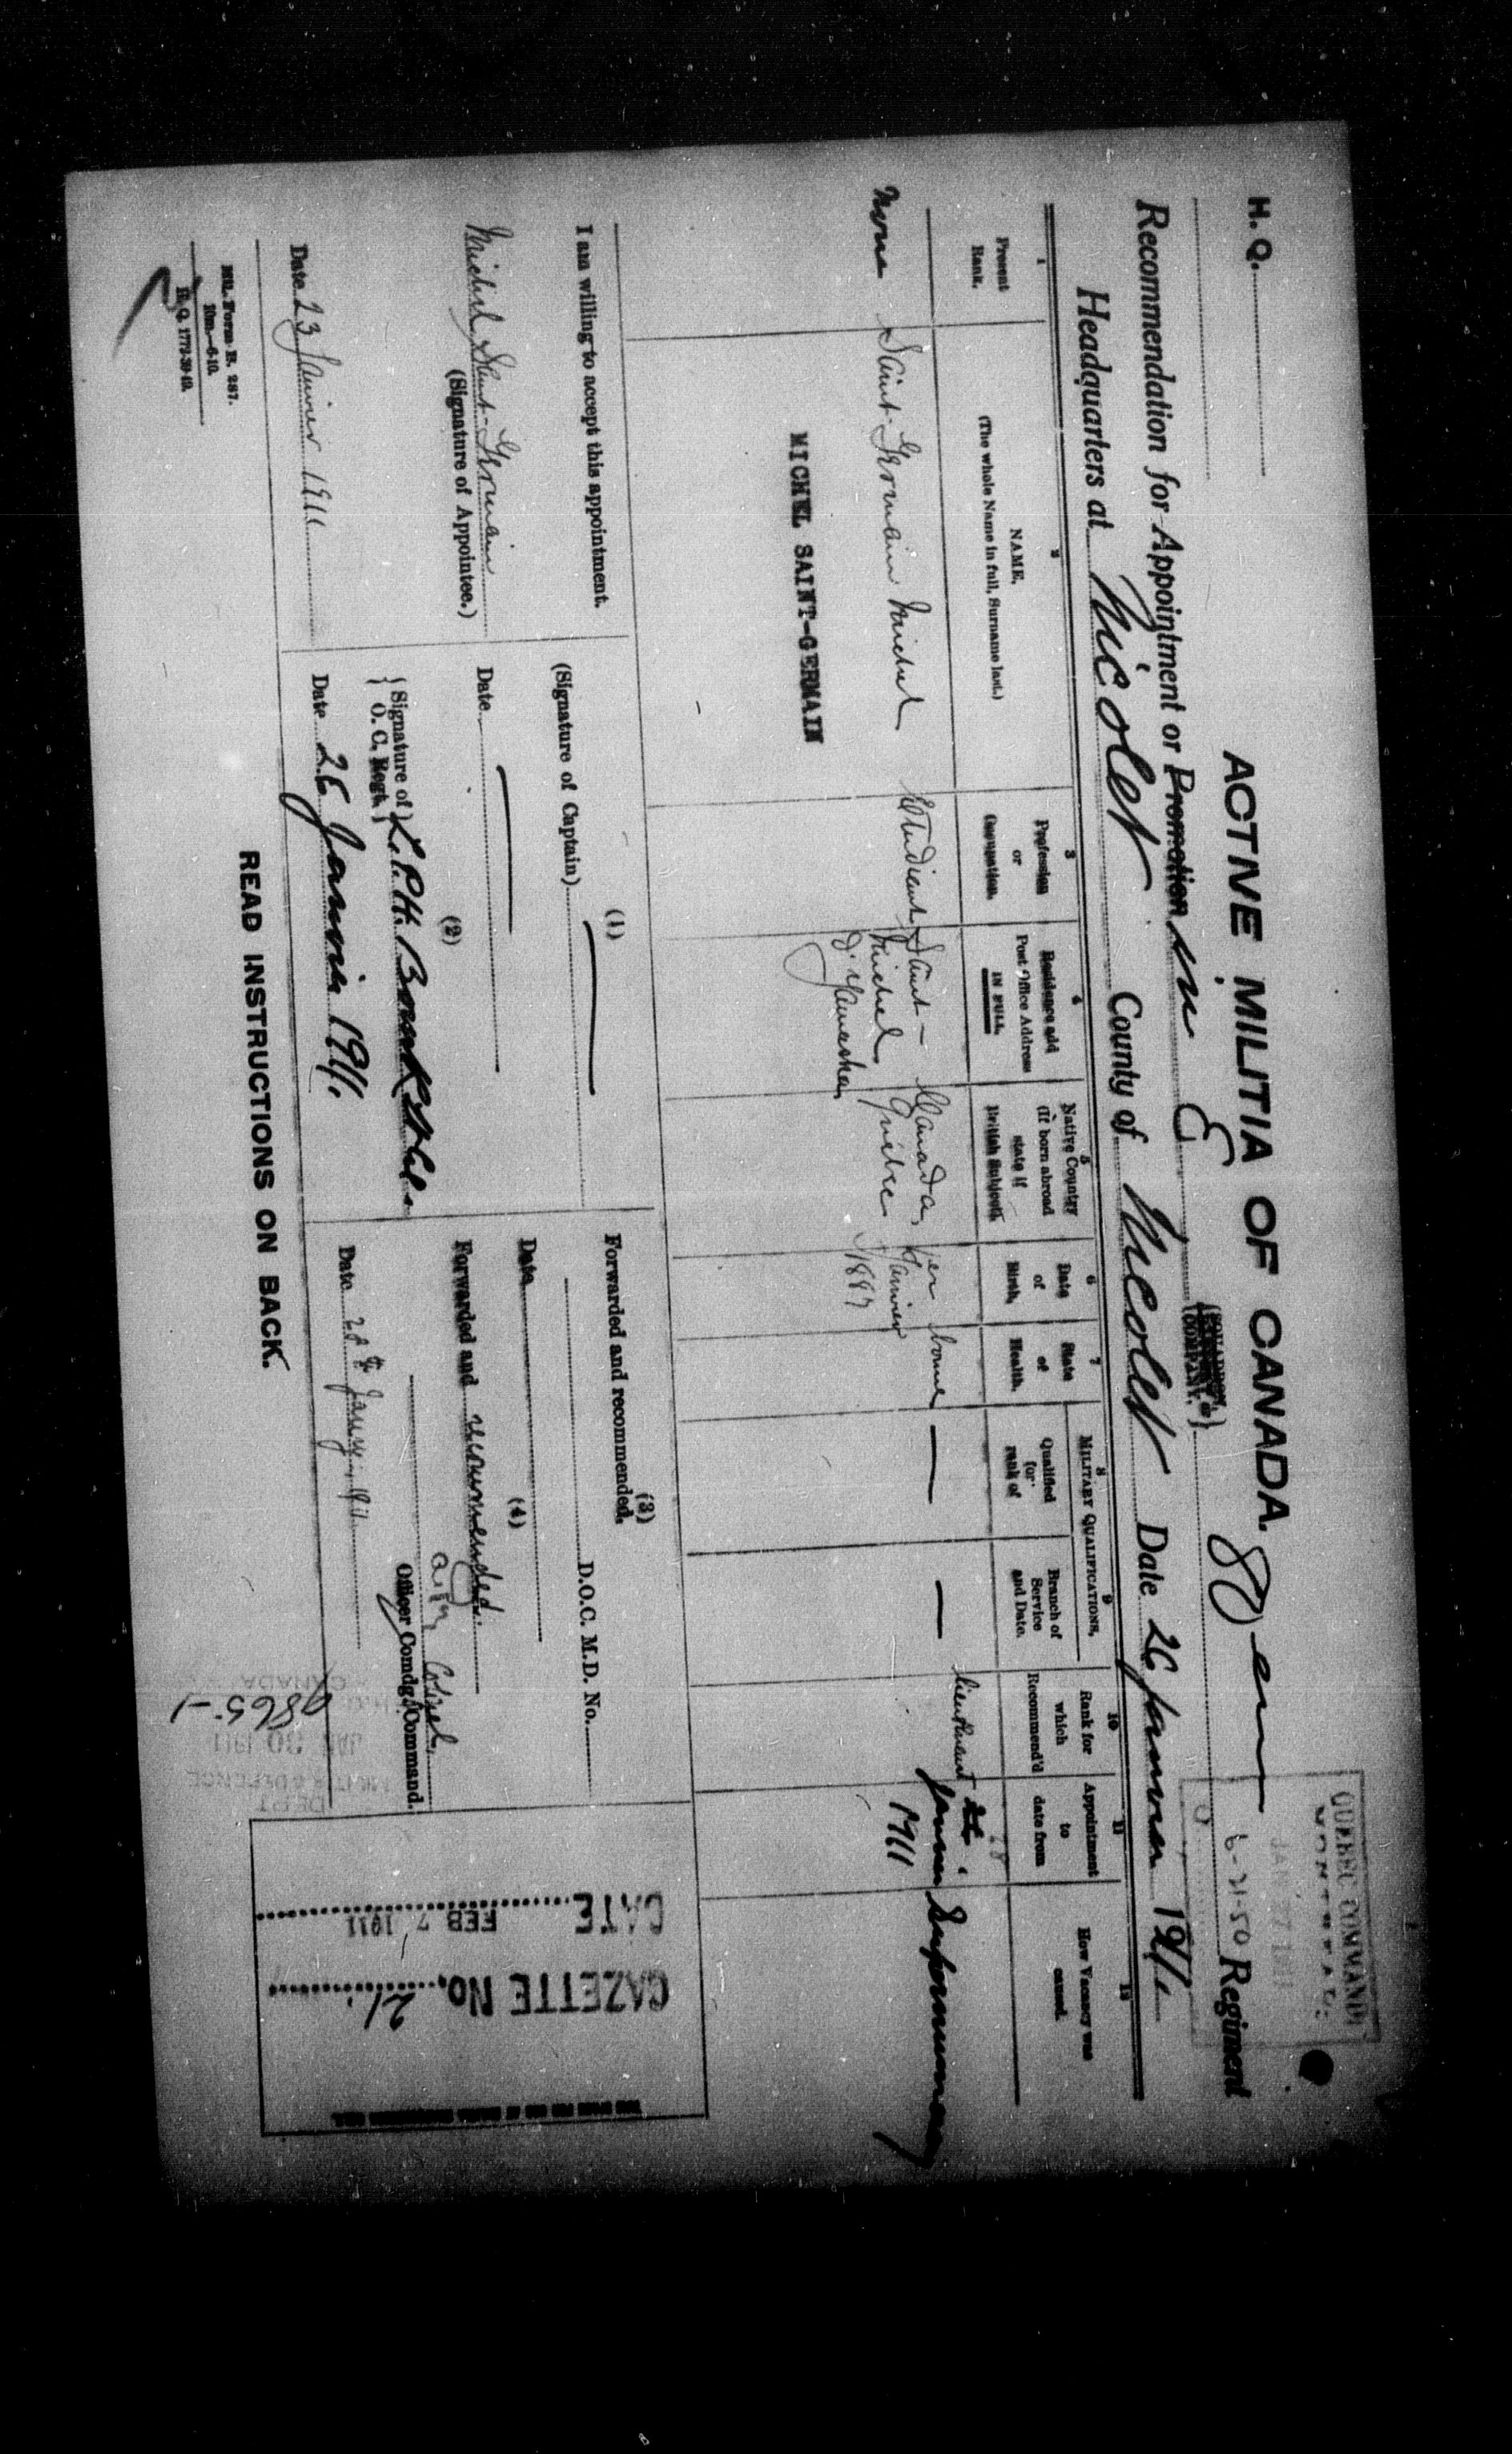 H. Q.
ACTIVE MILITIA OF CANADA.
Recommendation for Appointment or Promotion in E COMPANY. 80 eme Regiment
Headquarters at Nicolet County of Nicolet Date 26 Janvier 1911
QUEBEC COMMAND
6-21-50
1
Present
Rank.
2
NAME.
(The whole Name in full, Surname last.)
3
Profession
or
Occupation.
4
Residence and
Post Office Address
IN FULL.
5
Native Country
(If born abroad
state if
British Subject).
6
Date
of
Birth.
7
State
of
Health.
MILITARY QUALIFICATIONS.
8
Qualified
for
rank of
9
Branch of
Service
and Date.
10
Rank for
which
Recommend'd
11
Appointment
to
date from
12
How Vacancy was
caused.
None
Saint-Germain Michel
MICHEL SAINT-GERMAIN
Etudiant
Saint-
Michel
d'Yamaska
Canada,
Québec
1er
Janvier
bonne
—
—
lieutenant
28
Janvier
1911
Supernumerary
I am willing to accept this appointment.
Michel Saint-Germain
(Signature of Appointee.)
Date 23 Janvier 1911
(1)
(Signature of Captain)
Date
(2)
Signature of
O. C. Regt.
Date 26 Janvier 1911
(3)
Forwarded and recommended.
D.O.C. M.D. No.
Date
(4)
Forwarded and recommended.
Colonel,
Officer Comdg. Command.
Date 28th Jany. 1911
GAZETTE No. 21.
DATE FEB 7 1911
DEPT
MILITIA & DEFENCE
JAN 30 1911
CANADA
9865-1
Mil. Form B. 287.
10m—6-10.
H. Q. 1772-39-40.
READ INSTRUCTIONS ON BACK.